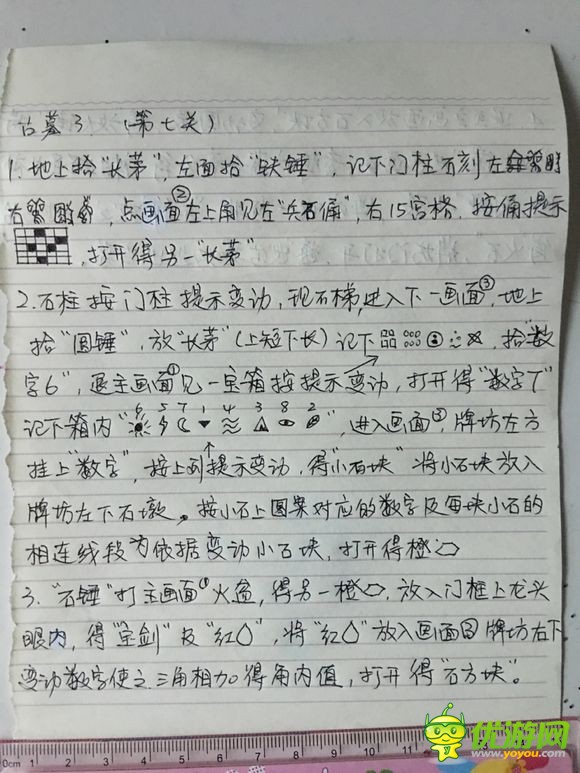 古墓3 (第七关)
1.地上拾“长茅”,左面拾“铁锤”,记下门柱石刻左
右,点画面②左上角见左“兵石俑”,右15宫格.按俑提示
,打开得另一“长茅”
2.石柱按门柱提示变动,现石梯,进入下一画面③,地上
拾“圆锤”,放“长茅”(上短下长)记下 ,拾“数
字6”,退主画面①见一宝箱按提示变动,打开得“数字7”
6 5 7 1 4 3 8 2
记下箱内“ ”,进入画面③,牌坊左方
挂上“数字”,按上列提示变动,得“小石块”将小石块放入
牌坊左下石墩。按小石上图案对应的数字及每块小石的
相连线段为依据变动小石块,打开得橙
3.“石锤”打主画面①火盆,得另一橙,放入门框上龙头
眼内,得“宝剑”及“红”,将“红”放入画面 牌坊右下
变动数字使之三角相加得角内值,打开得“石方块”。
0cm 1 2 3 4 5 6 7 8 9 10 11
优游网
www.yoyou.com